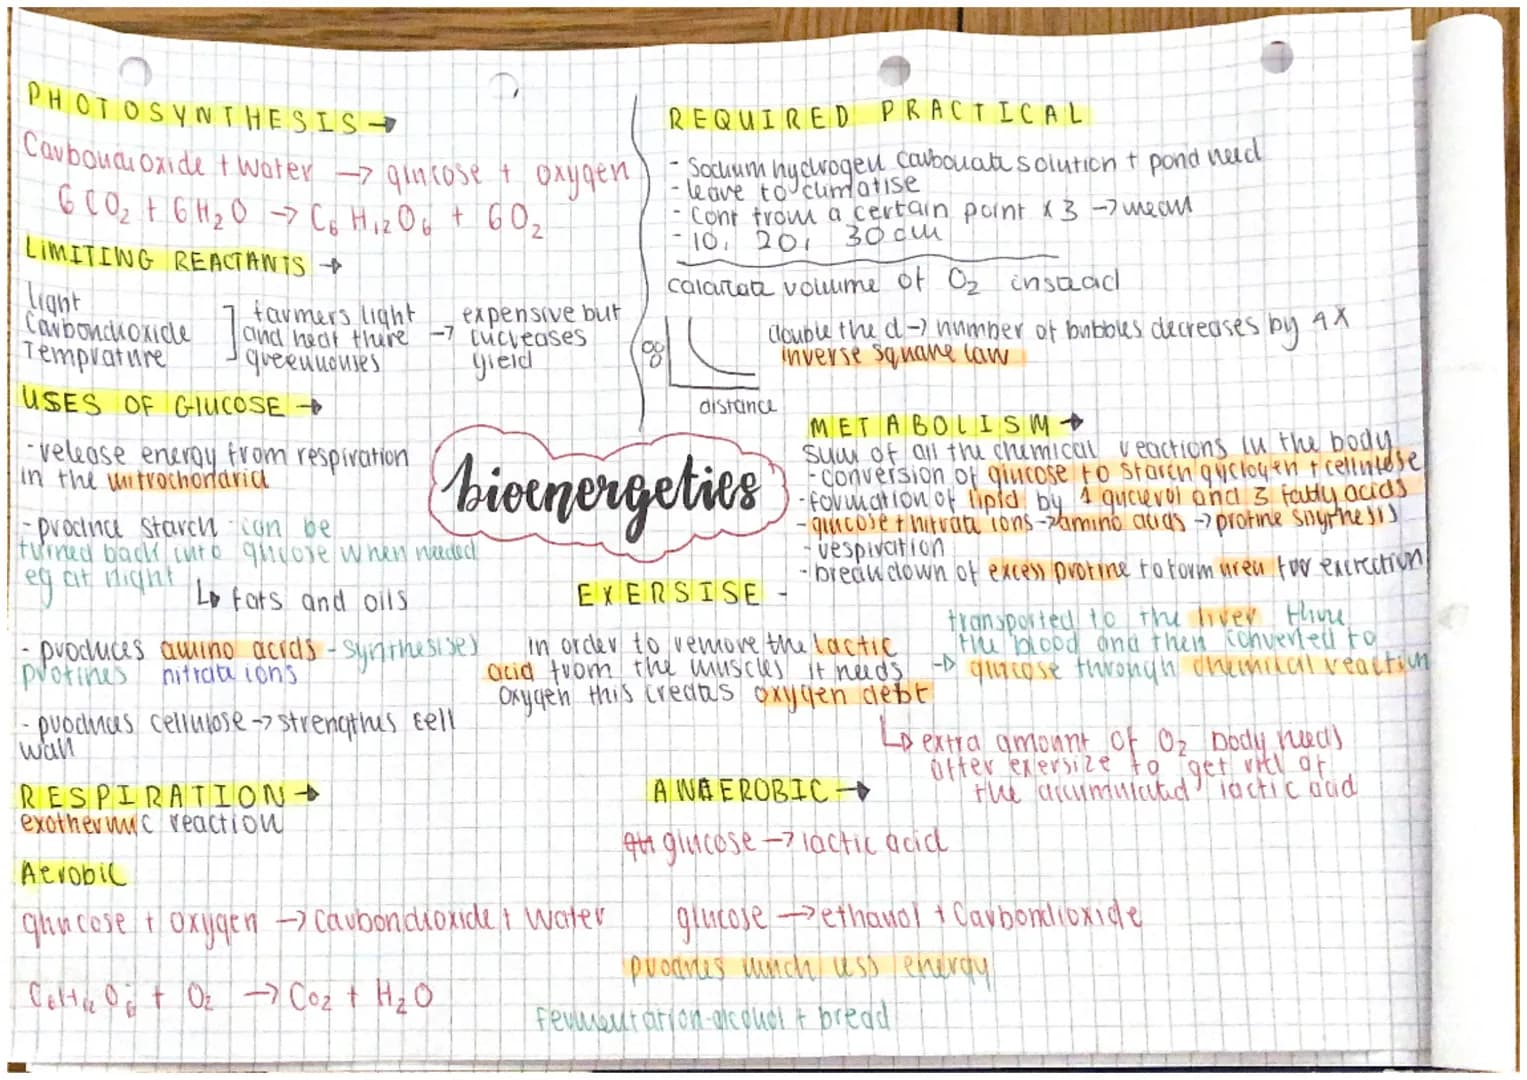 PHOTOSYNTHESIS →
Carbondioxide + Water → glucose + oxygen
6CO₂ + 6H₂O → C₆H₁₂O₆ + 6O₂
LIMITING REACTANTS →
light
Carbondioxide
Temprature
farmers light
and heat there
greenhouses
→ expensive but
increases
yield
USES OF GLUCOSE →
- release energy from respiration
in the mitrochondria
- produce starch - can be
turned back into glucose when needed
eg at night
↳ fats and oils
- produces amino acids - synthesises
protines nitrate ions
- produces cellulose → strengths cell
wall
RESPIRATION →
exothermic reaction
Aerobic
glucose + oxygen → Carbondioxide + Water
C₆H₁₂O₆ + O₂ → Co₂ + H₂O
REQUIRED PRACTICAL
- Sodium hydrogen carbonate solution + pond weed
- leave to climatise
- Cont from a certain point x 3 → mean
- 10, 20, 30 cm
volume of O₂ instead
double the d → number of bubbles decreases by 4x
inverse square law
distance
bioenergetics
METABOLISM →
Sum of all the chemical reactions in the body
- conversion of glucose to starch glycogen + cellulose
- formation of lipid by 1 glycerol and 3 fatty acids
- glucose + nitrate ions → amino acids → protine snythesis
- respiration
- breakdown of excess protine to form urea for excretion
EXERSISE -
in order to remove the lactic
acid from the muscles it needs
oxygen this creates oxygen debt
transported to the liver thru
the blood and then converted to
→ glucose through chemical reaction
↳ extra amount of O₂ body needs
after exersize to get rid of
the accumulated lactic acid
ANAEROBIC →
glucose → lactic acid
glucose → ethanol + Carbondioxide
produces much less energy
Fermentation - alcohol + bread